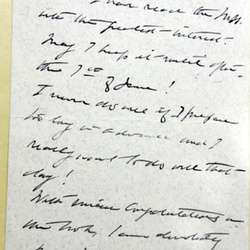 I have read the MSS.
with the greatest interest.
May I keep it until after
the 7th of June!
I never do any if I prepare
too long in advance and I
really want to do well that
day!
With sincere Congratulations on
the work, I am devotedly